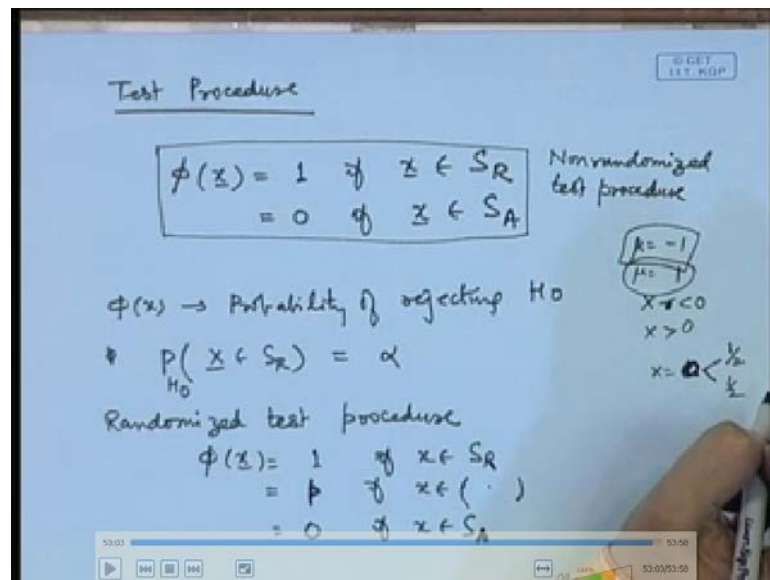 © CET
I.I.T. KGP
Test Procedure
ϕ(x) = 1 if x ∈ S_R
= 0 if x ∈ S_A
Nonrandomized
test procedure
μ = -1
μ = 1
x < 0
x > 0
x = 0 < 1/2
1/2
ϕ(x) → Probability of rejecting H0
P_{H0}(x ∈ S_R) = α
Randomized test procedure
ϕ(x) = 1 if x ∈ S_R
= p if x ∈ ( · )
= 0 if x ∈ S_A
53:03
53:58
53:03/53:58